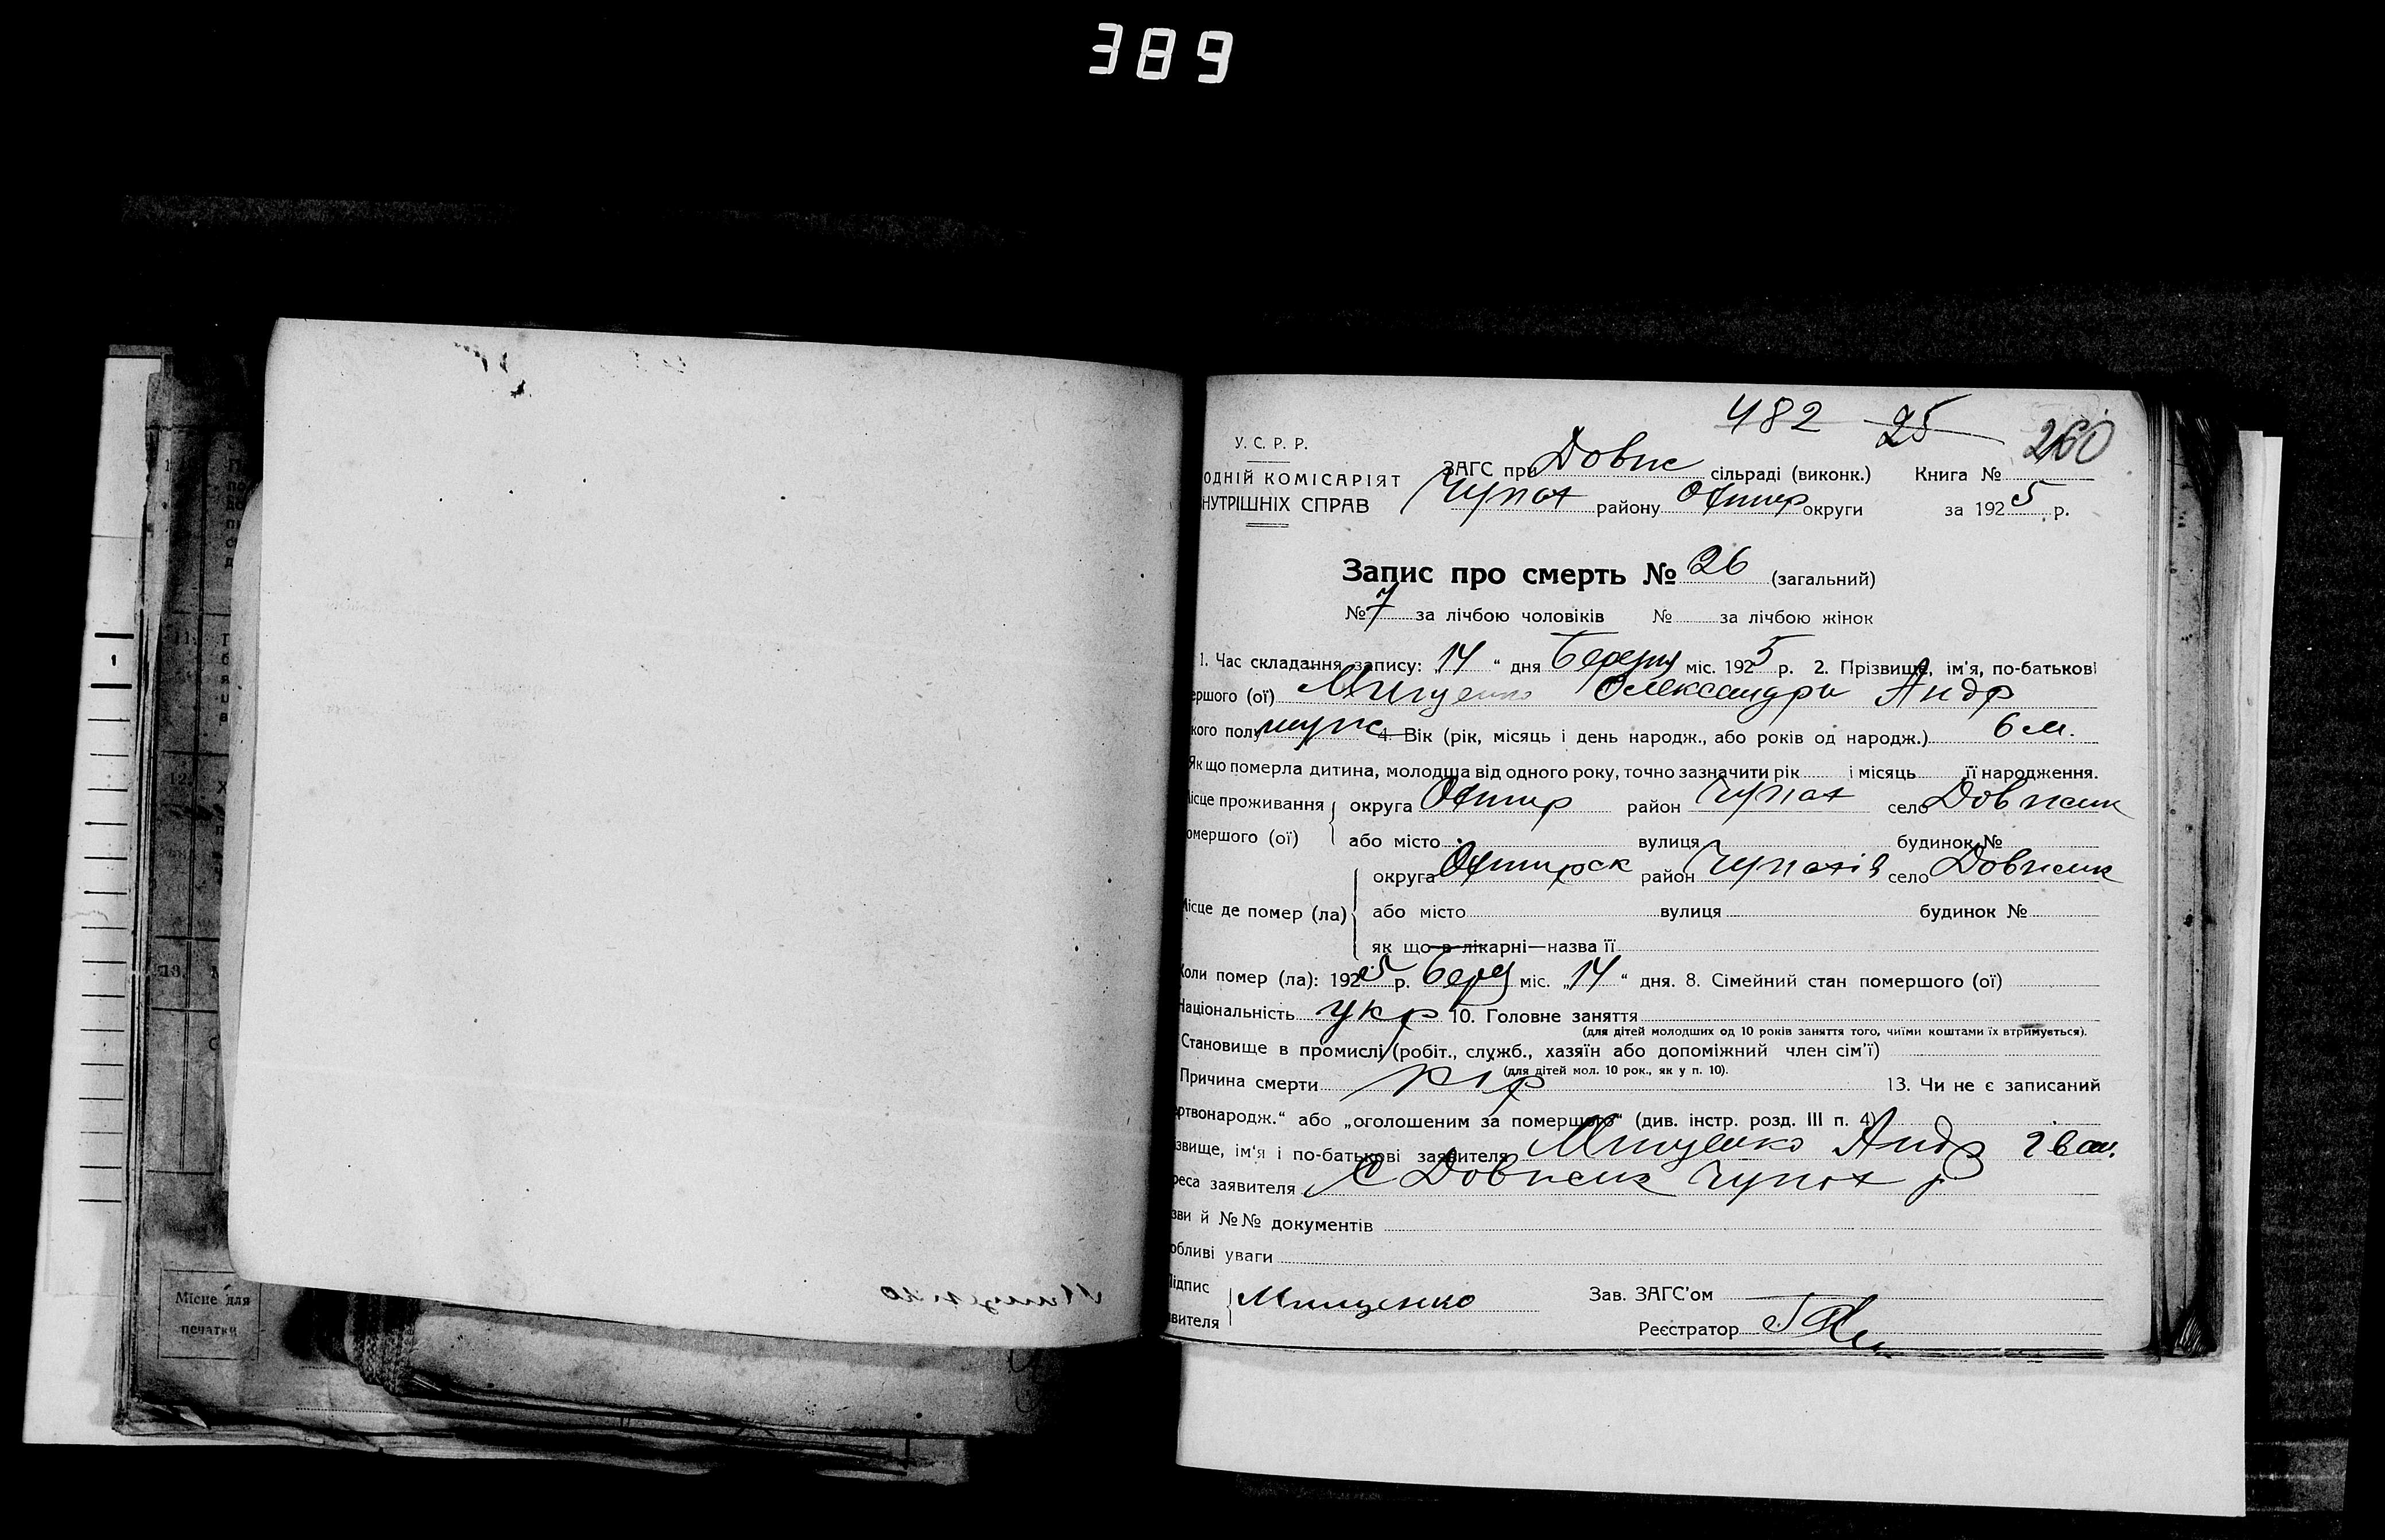 389
482 25 260
У. С. Р. Р.
ОДНІЙ КОМІСАРІЯТ
НУТРІШНІХ СПРАВ
ЗАГС при Довж сільраді (виконк.) Книга №
Чупах району Охтир округи за 1925 р.
Запис про смерть № 26 (загальний)
№ 7 за лічбою чоловіків № за лічбою жінок
1. Час складання запису: 14 “ дня Березня міс. 1925 р. 2. Прізвище, ім'я, по-батькові
ершого (ої) Мищенко Олександри Андр
кого полу муж 4. Вік (рік, місяць і день народж., або років од народж.) 6 м.
Як що померла дитина, молодша від одного року, точно зазначити рік і місяць її народження.
ісце проживання округа Охтир район Чупах село Довжик
омершого (ої) або місто вулиця будинок №
округа Охтирск район Чупахів село Довжик
Місце де помер (ла) або місто вулиця будинок №
як що в лікарні—назва її
Коли помер (ла): 1925 р. берез міс. „14“ дня. 8. Сімейний стан помершого (ої)
Національність укр 10. Головне заняття
(для дітей молодших од 10 років заняття того, чиїми коштами їх втримується).
Становище в промислі (робіт., служб., хазяїн або допоміжний член сім'ї)
(для дітей мол. 10 рок., як у п. 10).
Причина смерти кір 13. Чи не є записаний
ртвонародж.“ або „оголошеним за померщого“ (див. інстр. розд. III п. 4)
звище, ім'я і по-батькові заявителя Мищенко Андр Іван.
реса заявителя С Довжик Чупах р
зви й №№ документів
обливі уваги
Підпис
явителя Мищенко
Зав. ЗАГС'ом
Реєстратор
Місце для
печатки
11.
12.
13.